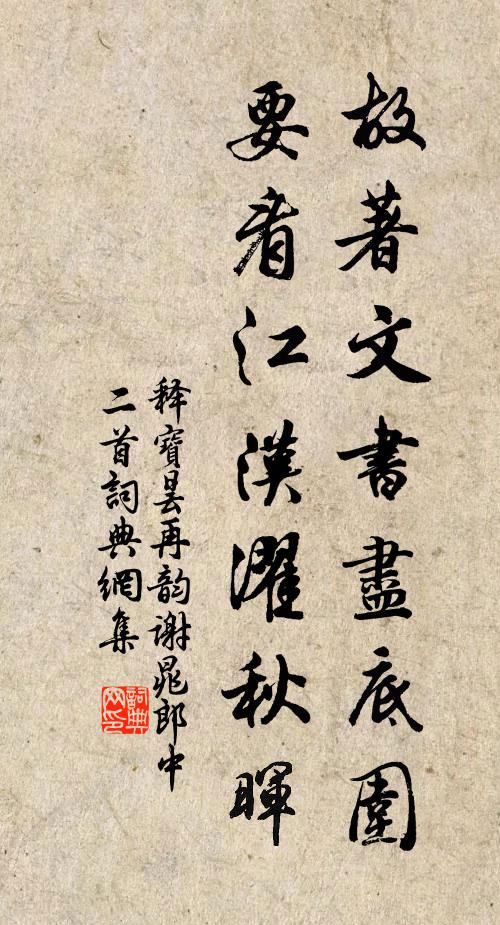 故著文書盡底圍
要看江漢濯秋暉
释寶曇再韵谢晁郎中
二首詞典網集
詞典网印